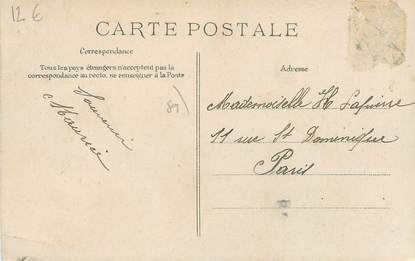 12 €
CARTE POSTALE
Correspondance
Tous les pays étrangers n'acceptent pas la
correspondance au recto, se renseigner à la Poste
Souvenir
Maurice
89
Adresse
Mademoiselle H Lapierre
11 rue St Dominique
Paris